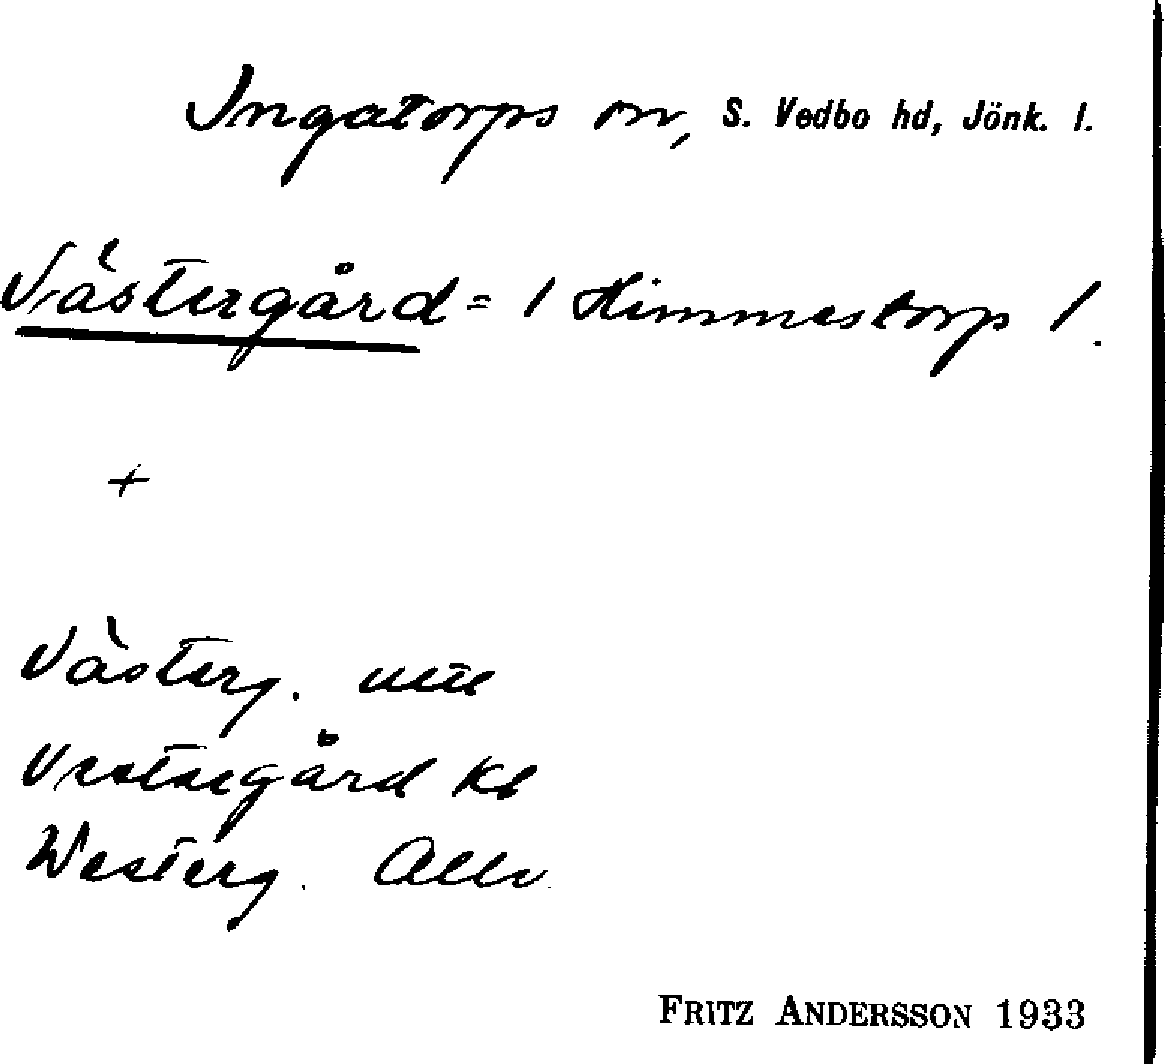 Ingatorps sn, S. Vedbo hd, Jönk. l.
Västergård = / Himmestorp /.
+
Västerg.
Vestergård Kb
Westerg.
FRITZ ANDERSSON 1933